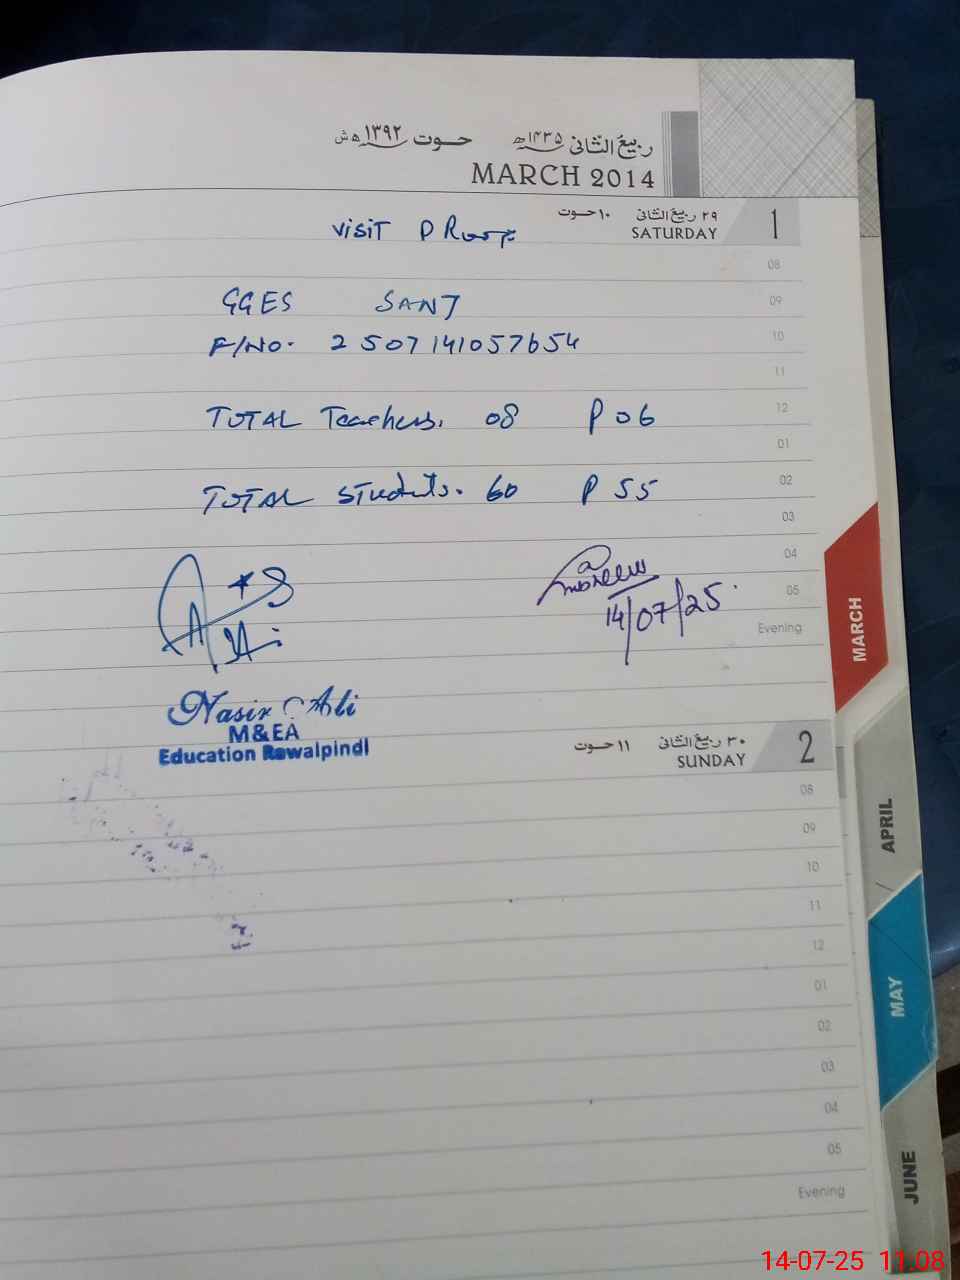 ربیع الثانی ۱۴۳۵ھ حوت ۱۳۹۲ ھ ش
MARCH 2014
۲۹ ربیع الثانی ۱۰ حوت
SATURDAY 1
VISIT PRoof
08
GGES SANJ
09
F/NO. 2507141057654
10
11
TOTAL Teachers. 08 P 06
12
01
TOTAL Students. 60 P 55
02
03
04
05
14/07/25
Evening
Nasir Ali
M&EA
Education Rawalpindi
۳۰ ربیع الثانی ۱۱ حوت
SUNDAY 2
08
09
10
11
12
01
02
03
04
05
Evening
MARCH
APRIL
MAY
JUNE
14-07-25 11:08